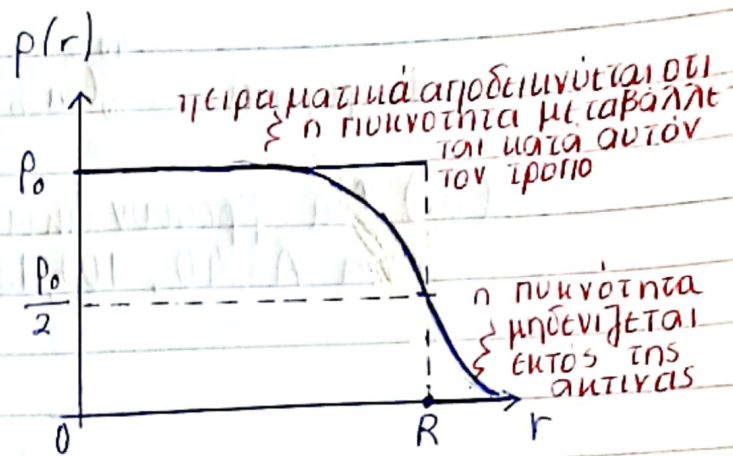 ρ(r)
πειραματικά αποδεικνύεται οτι
η πυκνότητα μεταβάλλε
ται κατά αυτόν
τον τρόπο
ρ₀
ρ₀/2
η πυκνότητα
μηδενίζεται
εκτός της
ακτίνας
0
R
r